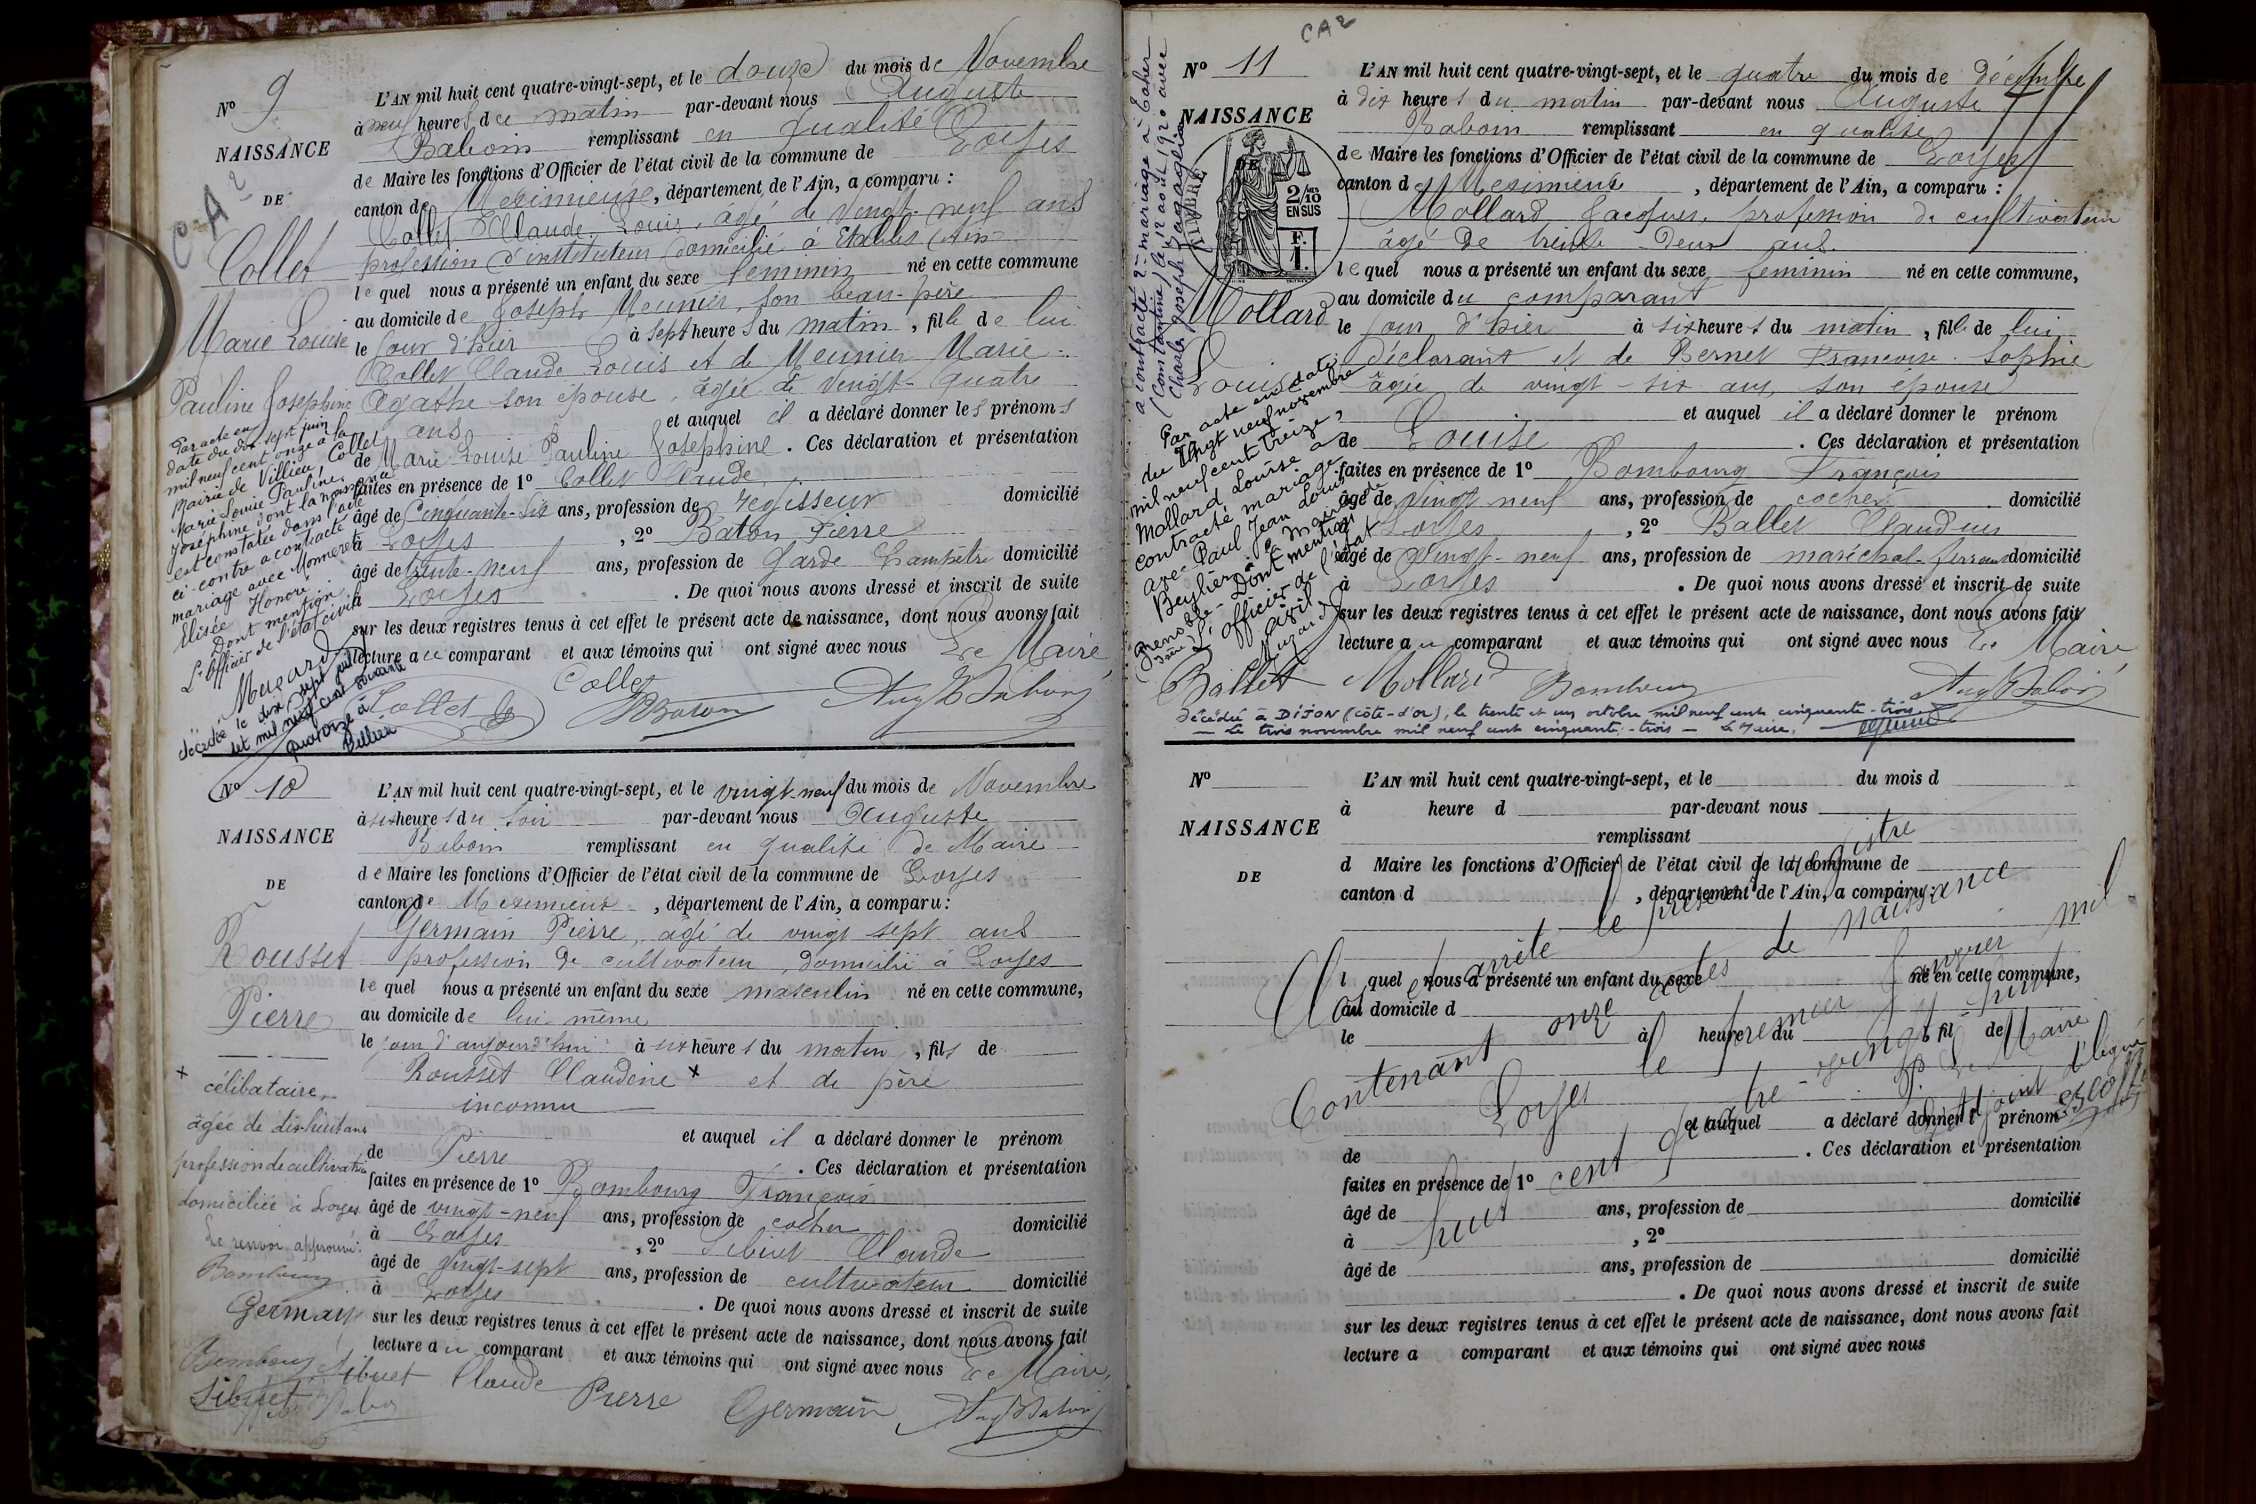 N° 9
NAISSANCE
DE
CA2
Collet
Marie Louise
Pauline Joséphine
Par acte en
date du dix sept juin
mil neuf cent onze à la
Mairie de Villieu, Collet
Marie Louise Pauline,
Joséphine dont la naissance
est constatée dans l'acte
ci-contre a contracté
mariage avec Monneret
Elisée Honoré
Dont mention
L'officier de l'état civil
décédée le dix sept juil
let mil neuf cent soixante
quatorze à
Villieu
L'AN mil huit cent quatre-vingt-sept, et le douze du mois de Novembre
à neuf heures du matin par-devant nous Auguste
Baboin remplissant en qualité
de Maire les fonctions d'Officier de l'état civil de la commune de Loyes
canton de Meximieux, département de l'Ain, a comparu :
Collet Claude Louis, âgé de vingt-neuf ans
profession d'instituteur domicilié à Etables (Ain
lequel nous a présenté un enfant du sexe féminin né en cette commune
au domicile de Joseph Meunier, son beau-père
le jour d'hier à sept heures du matin, fille de lui
Collet Claude Louis et de Meunier Marie
Agathe son épouse, âgée de vingt-quatre
ans et auquel il a déclaré donner les prénoms
de Marie Louise Pauline Joséphine. Ces déclaration et présentation
faites en présence de 1° Collet Claude
âgé de Cinquante-six ans, profession de régisseur domicilié
à Loyes, 2° Baton Pierre
âgé de trente-neuf ans, profession de Garde Champêtre domicilié
à Loyes. De quoi nous avons dressé et inscrit de suite
sur les deux registres tenus à cet effet le présent acte de naissance, dont nous avons fait
lecture au comparant et aux témoins qui ont signé avec nous Le Maire
Collet Collet Baton Aug Baboin
N° 10
NAISSANCE
DE
Rousset
Pierre
+ célibataire
âgée de dix-huit ans
profession de cultivatrice
domiciliée à Loyes
Le renvoi approuvé:
Bombourg
Germain
Bombourg
Sibuet
L'AN mil huit cent quatre-vingt-sept, et le vingt-neuf du mois de Novembre
à six heures du soir par-devant nous Auguste
Baboin remplissant en qualité de Maire
de Maire les fonctions d'Officier de l'état civil de la commune de Loyes
canton de Meximieux, département de l'Ain, a comparu :
Germain Pierre, âgé de vingt sept ans
profession de cultivateur, domicilié à Loyes
lequel nous a présenté un enfant du sexe masculin né en cette commune,
au domicile de lui même
le jour d'aujourd'hui à six heures du matin, fils de
Rousset Claudine + et de père
inconnu
et auquel il a déclaré donner le prénom
de Pierre. Ces déclaration et présentation
faites en présence de 1° Bombourg François
âgé de vingt-neuf ans, profession de cocher domicilié
à Loyes, 2° Sibuet Claude
âgé de vingt-sept ans, profession de cultivateur domicilié
à Loyes. De quoi nous avons dressé et inscrit de suite
sur les deux registres tenus à cet effet le présent acte de naissance, dont nous avons fait
lecture au comparant et aux témoins qui ont signé avec nous Le Maire,
Sibuet Claude Pierre Germain Aug Baboin
CA2
N° 11
NAISSANCE
DE
TIMBRE
2/10
EN SUS
F.
1.
Mollard
Louise
a contracté 2e mariage à Colier
(Constantine) le 12 août 1920 avec
Charles Joseph
Par acte en date
du Vingt neuf novembre
mil neuf cent treize,
Mollard Louise a
contracté mariage
avec Paul Jean Louis
Beylier à la Mairie de
Grenoble. Dont mention
Isère L'officier de l'état
civil
L'AN mil huit cent quatre-vingt-sept, et le quatre du mois de décembre
à dix heures du matin par-devant nous Auguste
Baboin remplissant en qualité
de Maire les fonctions d'Officier de l'état civil de la commune de Loyes
canton de Meximieux, département de l'Ain, a comparu :
Mollard Jacques, profession de cultivateur
âgé de trente-deux ans
lequel nous a présenté un enfant du sexe féminin né en cette commune,
au domicile du comparant
le jour d'hier à six heures du matin, fille de lui
déclarant et de Bernet Françoise Sophie
âgée de vingt-six ans, son épouse
et auquel il a déclaré donner le prénom
de Louise. Ces déclaration et présentation
faites en présence de 1° Bombourg François
âgé de vingt neuf ans, profession de cocher domicilié
à Loyes, 2° Ballet Claudius
âgé de vingt-neuf ans, profession de maréchal-ferrant domicilié
à Loyes. De quoi nous avons dressé et inscrit de suite
sur les deux registres tenus à cet effet le présent acte de naissance, dont nous avons fait
lecture au comparant et aux témoins qui ont signé avec nous Le Maire
Ballet Mollard Bombourg Aug Baboin
Décédée à DIJON (Côte-d'Or), le trente et un octobre mil neuf cent cinquante-trois.
— Le trois novembre mil neuf cent cinquante-trois — Le Maire,
N°
NAISSANCE
DE
L'AN mil huit cent quatre-vingt-sept, et le du mois d
à heure d par-devant nous
remplissant
d Maire les fonctions d'Officier de l'état civil de la commune de
canton d , département de l'Ain, a comparu :
l quel nous a présenté un enfant du sexe né en cette commune,
au domicile d
le à heure du , fil de
et auquel a déclaré donner l prénom
de . Ces déclaration et présentation
faites en présence de 1°
âgé de ans, profession de domicilié
à , 2°
âgé de ans, profession de domicilié
à . De quoi nous avons dressé et inscrit de suite
sur les deux registres tenus à cet effet le présent acte de naissance, dont nous avons fait
lecture a comparant et aux témoins qui ont signé avec nous
Clos et arrêté le présent registre
Contenant onze actes de naissance
Loyes le premier Janvier mil
huit cent quatre-vingt-huit
P. Le Maire
L'adjoint délégué